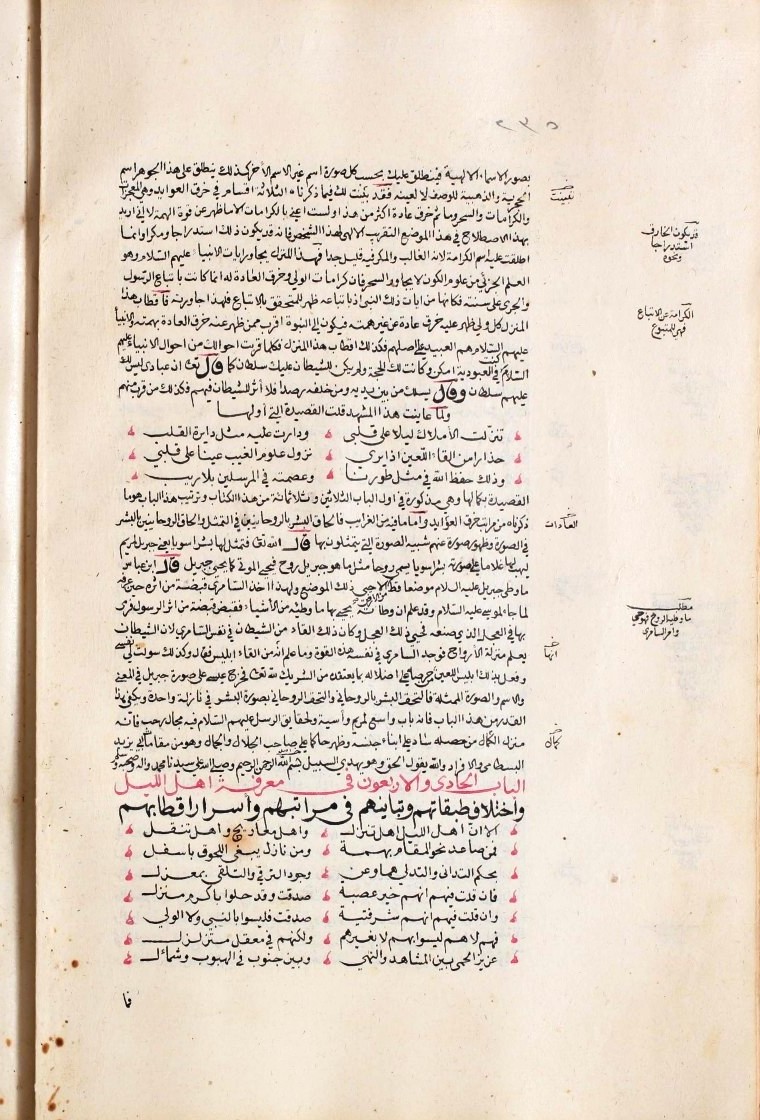 ٢٣٥
بصور الاسماء الالهية فينطلق عليك بحسب كل صورة اسم غير الاسم الاخر كذلك ينطلق على هذا الجوهر اسم
الحجرية والذهبية للوصف لا لعينه فقد بينت لك فيما ذكرناه الثلاثة اقسام في خرق العوايد وهي المعجزات
والكرامات والسحر وما ثم خرق عادة اكثر من هذا ولست اعني بالكرامات الا ما ظهر عن قوة الهمة لا اني اريد
بهذا الاصطلاح في هذا الموضع التقريب الالهي لهذا الشخص فانه قد يكون ذلك استدراجا ومكرا وانما
اطلقت عليه اسم الكرامة لانه الغالب والمكر فيه قليل جدا فهذا المنزل يجاور ايات الانبيا عليهم السلام وهو
العلم الجزئي من علوم الكون لا يجاور السحر فان كرامات الولي وخرق العادة له انما كانت باتباع الرسول
والجري على سنته فكانها من ايات ذلك النبي اذ باتباعه ظهر للمتحقق بالاتباع فلهذا جاورته فاقطاب هذا
المنزل كل ولي ظهر عليه خرق عادة عن غير همته فيكون الى النبوة اقرب ممن ظهر عنه خرق العادة بهمته والانبيا
عليهم السلام هم العبيد على اصلهم فكذلك اقطاب هذا المنزل فكلما قربت احوالك من احوال الانبياء عليهم
السلام كنت في العبودية امكن وكانت لك الحجة ولم يكن للشيطان عليك سلطان كما قال تعالى ان عبادي ليس لك
عليهم سلطان وقال يسلك من بين يديه ومن خلفه رصدا فلا اثر للشيطان فيهم فكذلك من قرب منهم
ولما عاينت هذا المشهد قلت القصيدة التي اولها
تنزلت الاملاك ليلا على قلبي ودارت عليه مثل دايرة القلب
حذارا من القاء اللعين اذا يرى نزول علوم الغيب عينا على قلبي
وذلك حفظ الله في مثل طورنا وعصمته في المرسلين بلا ريب
القصيدة بكمالها وهي مذكورة في اول الباب الثلاثين وثلاثمائة من هذا الكتاب وترتيب هذا الباب هو ما
ذكرناه من مراتب خرق العوايد واما ما فيه من الغرايب فالحاق البشر بالروحانيين في التمثل والحاق الروحانيين بالبشر
في الصورة وظهور صورة عنهم شبيه الصورة التي يتمثلون بها قال الله تعالى فتمثل لها بشرا سويا يعني جبريل لمريم
ليهب لها غلاما على صورته بشرا سويا يسمى روحا مثل ما هو جبريل روح فيحيي الموتى كما يحيي جبريل قال ابن عباس
ما وطي جبريل عليه السلام موضعا قط الا حيي ذلك الموضع ولهذا اخذ السامري قبضة من اثره حين عرفه
لما جاء لموسى عليه السلام وقد علم ان وطأته يحيي بها ما وطئه من الاشياء فقبض قبضة من اثر الرسول فرمى
بها في العجل الذي صنعه فحيي ذلك العجل وكان ذلك القاء من الشيطان في نفس السامري لان الشيطان
يعلم منزلة الارواح فوجد السامري في نفسه هذه القوة وما علم انه من القاء ابليس فقال وكذلك سولت لي نفسي
وفعل ذلك ابليس اللعين من حرصه على اضلاله بما يعتقده من الشريك لله تعالى فخرج عيسى على صورة جبريل في المعنى
والاسم والصورة الممثلة فالتحق البشر بالروحاني والتحق الروحاني بصورة البشر في نازلة واحدة ويكفي هذا
القدر من هذا الباب فانه باب واسع لمريم وآسية ولحقايق الرسل عليهم السلام فيه مجال رحب فانه
منزل الكمال من حصله ساد على ابناء جنسه وظهر حاكما على صاحب الجلال والجمال وهو من مقامات ابي يزيد
البسطامي والافراد والله يقول الحق وهو يهدي السبيل بسم الله الرحمن الرحيم وصلى الله على سيدنا محمد واله وصحبه وسلم
الباب الحادي والاربعون في معرفة اهل الليل
واختلاف طبقاتهم وتباينهم في مراتبهم وأسرار اقطابهم
الا ان اهل الليل اهل تنزل واهل معاريج واهل تنقل
فمن صاعد نحو المقام بهمة ومن نازل يبغي اللحوق باسفل
بحكم التداني والتدلي هما وعن وجود الترقي والتلقي بمعزل
فان قلت فيهم انهم خير عصبة صدقت وقد حلوا باكرم منزل
وان قلت فيهم انهم شر فتية صدقت فليسوا بالنبي ولا الولي
فهم لا هم ليسوا بهم لا بغيرهم ولكنهم في معقل متزلزل
عزيز الحمى بين المشاهد والنهى وبين جنوب في الهبوب وشمأل
فا
بينت
قد يكون الخارق
استدراجا
ونحوه
الكرامة عن الاتباع
فهي للمتبوع
العادات
مطلب
ما وطيه الروح فهو حي
وامر السامري
انها
كمال